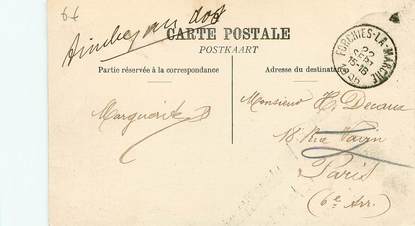 6f
CARTE POSTALE
POSTKAART
Partie réservée à la correspondance
Adresse du destinataire
FORCHIES-LA-MARCHE
22
SEPT
15-16
Marguerite
Monsieur H. Decaux
18 Rue Vavin
Paris
(6e Arr.)